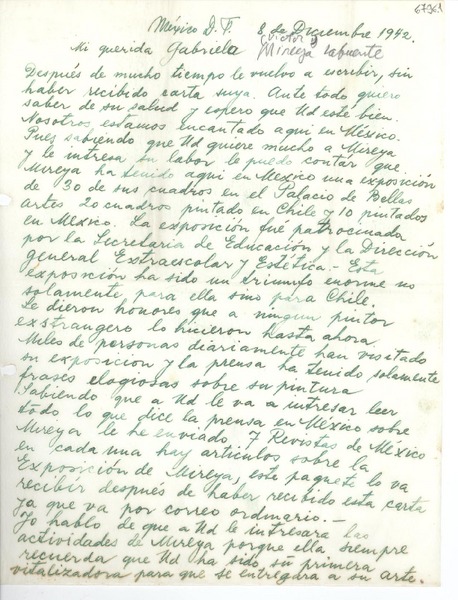 67361
México D.F. 8 de Diciembre 1942.
Victor y
Mi querida Gabriela Mireya Lafuente
Después de mucho tiempo le vuelvo a escribir, sin
haber recibido carta suya. Ante todo quiero
saber de su salud y espero que Ud esté bien.
Nosotros estamos encantado aqui en México.
Pues sabiendo que Ud quiere mucho a Mireya
y le intresa su labor le puedo contar que
Mireya ha tenido aqui en Mexico una exposición
de 30 de sus cuadros en el Palacio de Bellas
artes 20 cuadros pintado en Chile y 10 pintados
en México. La exposición fué patrocinada
por la Secretaria de Educación y la Dirección
general Extraescolar y Estética.- Esta
exposción ha sido un triumfo enorme no
solamente, para ella sino para Chile.
Le dieron honores que a ningun pintor
exstrangero lo hicieron hasta ahora.
Meles de personas diariamente han visitado
su exposicion y la prensa ha tenido solamente
frases elogiosas sobre su pintura
Sabiendo que a Ud le va a intresar leer
todo lo que dice la prensa en México sobre
Mireya le he enviado 7 Revistas de México
en cada una hay artículos sobre la
Exposición de Mireya, este paquete lo va
recibir después de haber recibido esta carta
ya que va por correo ordinario.-
Yo hablo de que a Ud le intresara las
actividades de Mireya porque ella siempre
recuerda que Ud ha sido su primera
vitalizadora para que se entregara a su arte.